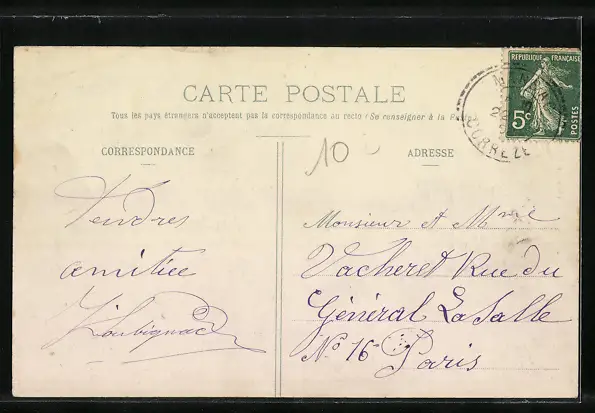 CARTE POSTALE
Tous les pays étrangers n'acceptent pas la correspondance au recto (Se renseigner à la
CORRESPONDANCE
10
ADRESSE
REPUBLIQUE FRANÇAISE
5c
POSTES
CORREZE
Tendres
amitiée
Monsieur et Mme
Vacheret Rue du
Général LaSalle
No 16 Paris